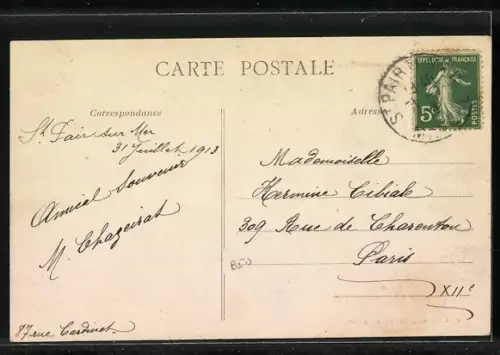 CARTE POSTALE
Correspondance
St Pair sur Mer
31 Juillet 1913
Amical Souvenir
M. Chazeirat
87 rue Cardinet
REPUBLIQUE FRANÇAISE
5c
POSTES
ST PAIR
Mademoiselle
Hermine Cibiale
309 Rue de Charenton
Paris
XIIe